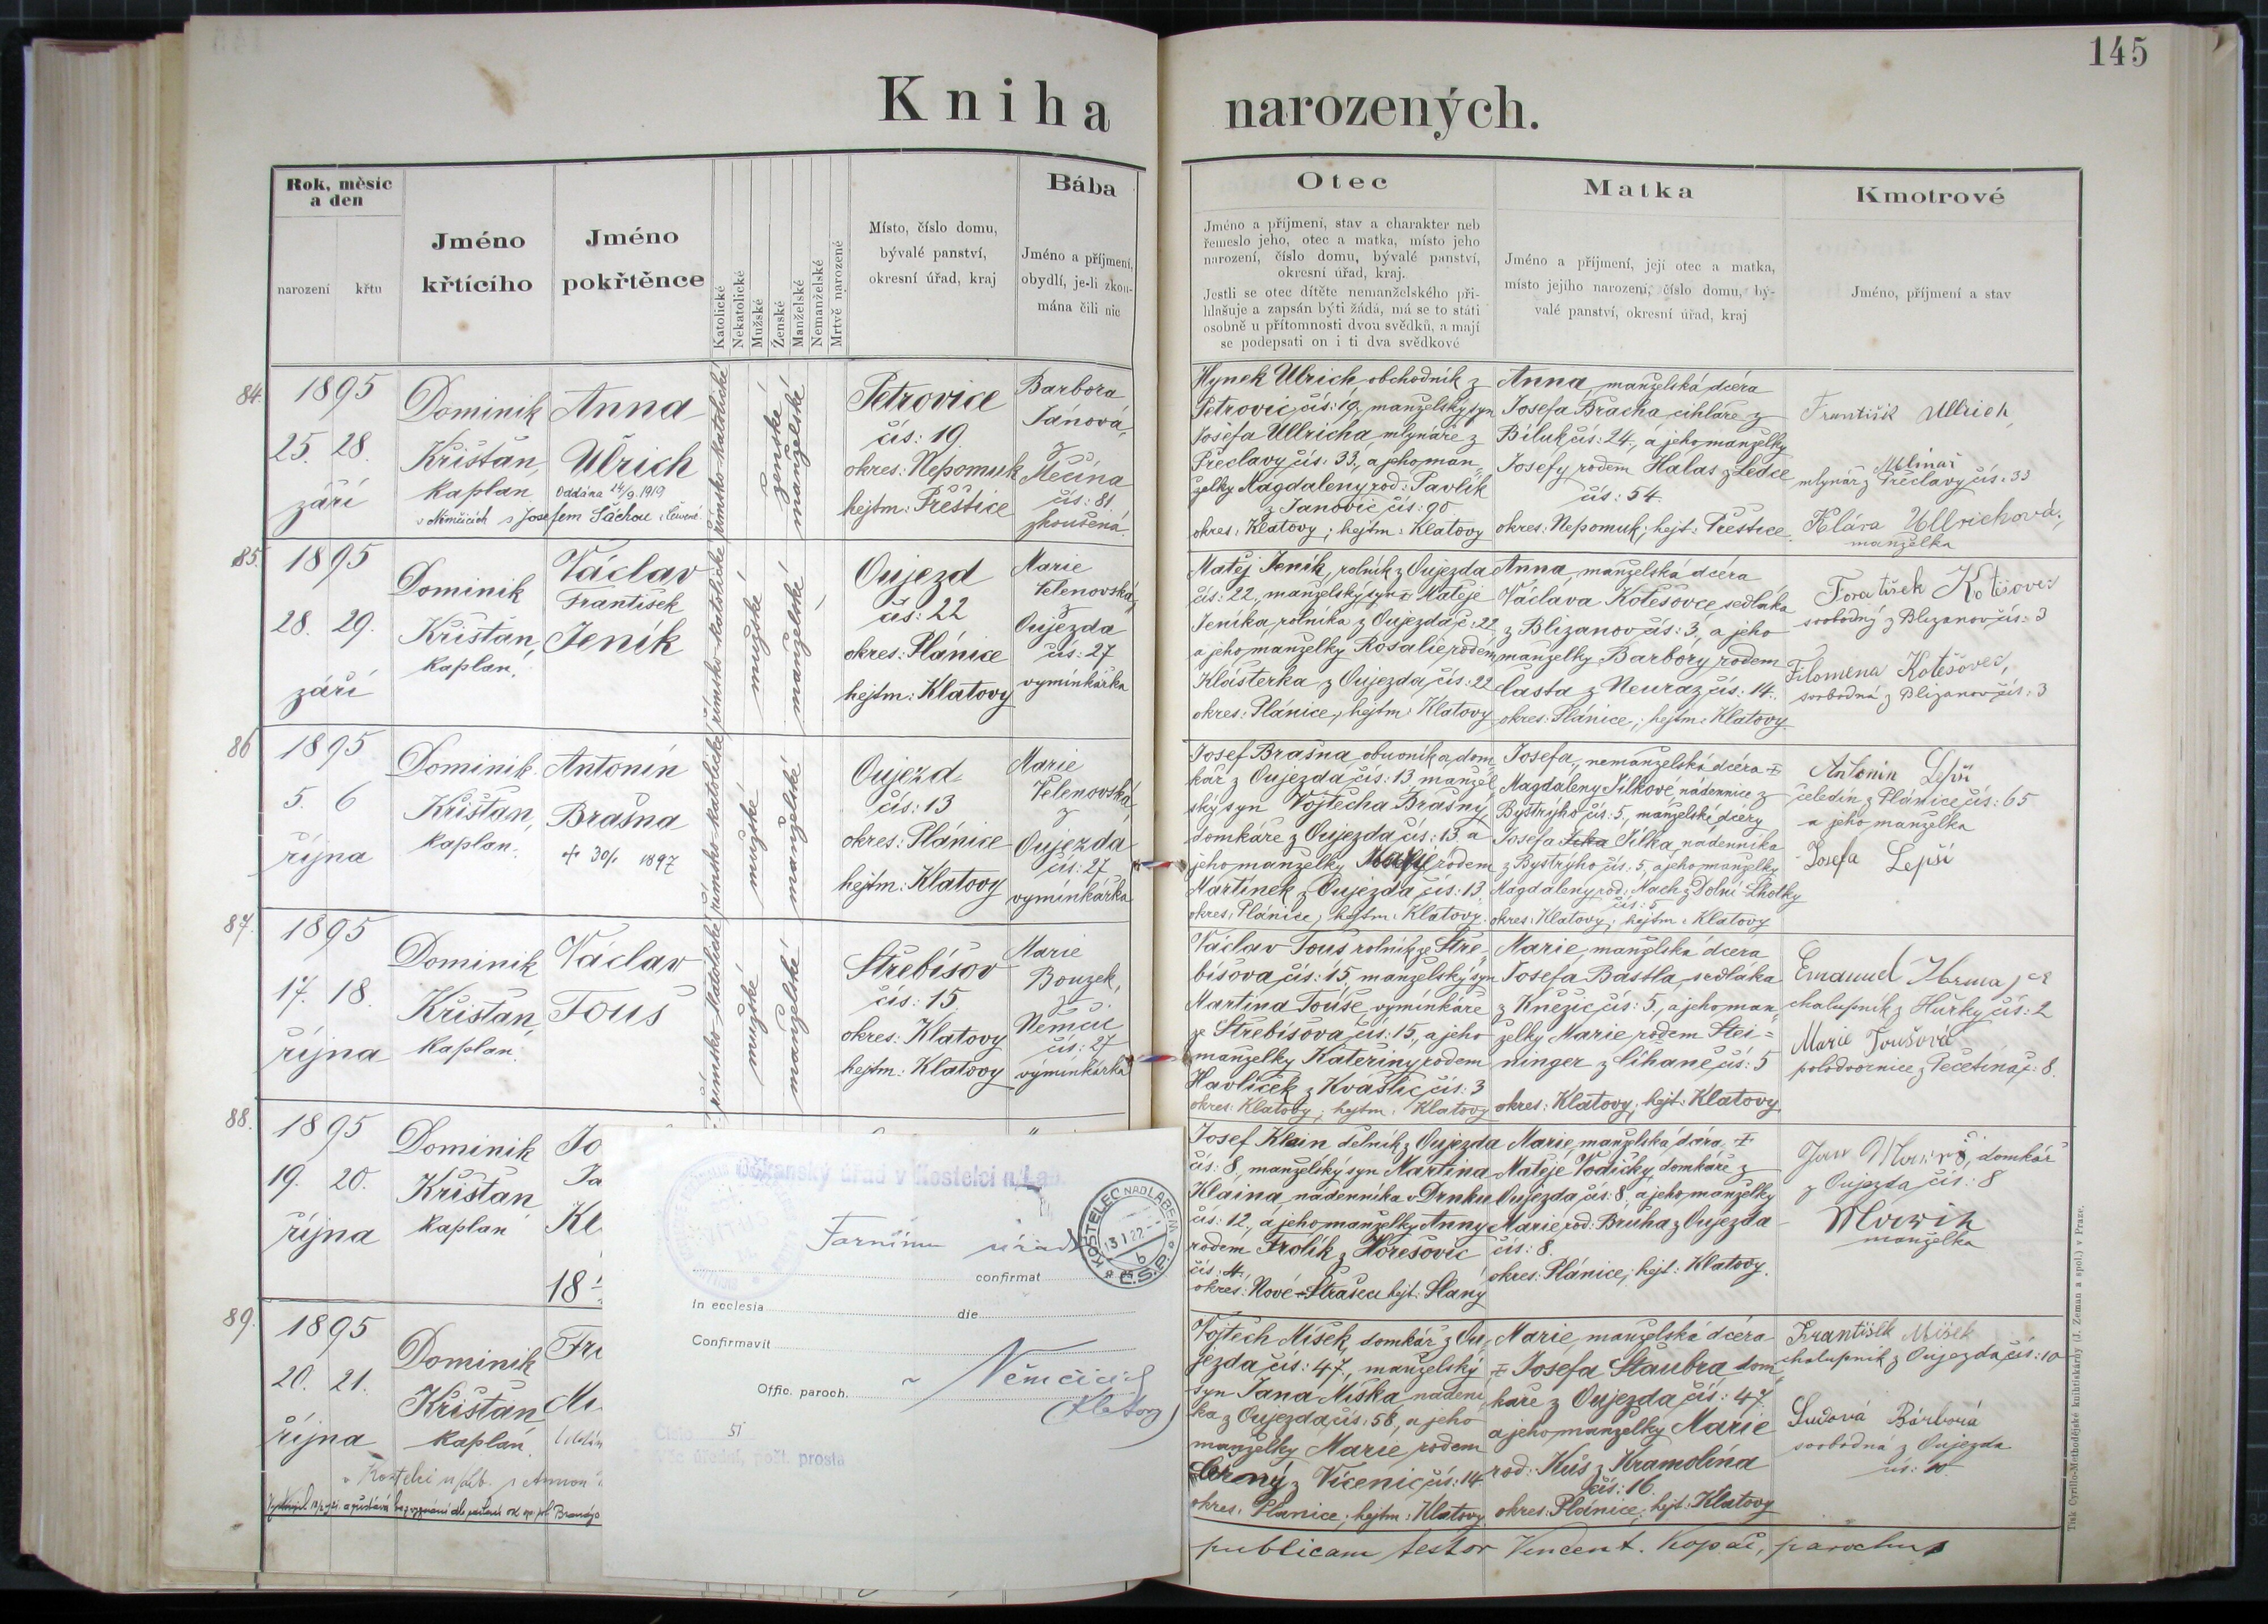 145
Kniha narozených.
Rok, měsíc
a den
narození křtu
Jméno
křtícího
Jméno
pokřtěnce
Katolické
Nekatolické
Mužské
Ženské
Manželské
Nemanželské
Mrtvě narozené
Místo, číslo domu,
bývalé panství,
okresní úřad, kraj
Bába
Jméno a příjmení,
obydlí, je-li zkou-
mána čili nic
Otec
Jméno a příjmení, stav a charakter neb
řemeslo jeho, otec a matka, místo jeho
narození, číslo domu, bývalé panství,
okresní úřad, kraj.
Jestli se otec dítěte nemanželského při-
hlašuje a zapsán býti žádá, má se to státi
osobně u přítomnosti dvou svědků, a mají
se podepsati on i ti dva svědkové
Matka
Jméno a příjmení, její otec a matka,
místo jejího narození, číslo domu, bý-
valé panství, okresní úřad, kraj
Kmotrové
Jméno, příjmení a stav
84.
1895
25. 28.
září
Dominik
Křišťan,
kaplan
Anna
Ulrich
Oddána 14/9. 1919
v Němčicích s Josefem
římsko-katolické
ženské
manželské
Petrovice
čís: 19.
okres: Nepomuk
hejtm: Přeštice
Barbora
Janová,
z
Měčína
čís: 81.
zkoušená.
Hynek Ulrich, obchodník z
Petrovic čís: 19, manželský syn
Josefa Ullricha, mlynáře z
Předlavy čís: 33, a jeho man-
želky Magdaleny rod: Pavlík
z Janovic čís: 90
okres: Klatovy; hejtm: Klatovy
Anna, manželská dcéra
Josefa Bracha, cihláře z
Bíluk čís: 24, a jeho manželky
Josefy rodem Halas z Ledce
čís: 54.
okres: Nepomuk; hejt: Přeštice.
František Ullrich,
mlynář z Předlavy čís: 33
Klára Ullrichová,
manželka
85.
1895
28. 29.
září
Dominik
Křišťan,
kaplan.
Václav
František
Jeník
římsko-katolické
mužské
manželské
Oujezd
čís: 22
okres: Plánice
hejtm: Klatovy
Marie
Velenovská,
z
Oujezda
čís: 27
vymínkářka
Matěj Jeník, rolník z Oujezda
čís: 22, manželský syn Matěje
Jeníka, rolníka z Oujezda č: 22
a jeho manželky Rosalie rodem
Klásterka z Oujezda čís: 22
okres: Plánice; hejtm: Klatovy
Anna, manželská dcéra
Václava Kotěšovce, sedláka
z Blizanov čís: 3, a jeho
manželky Barbory rodem
Častа z Neuraz čís: 14.
okres: Plánice; hejtm: Klatovy.
Kotěšovec
svobodný z Blizanov čís: 3
Filomena Kotěšovec,
svobodná z Blizanov čís: 3
86
1895
5. 6
října
Dominik
Křišťan,
kaplan.
Antonín
Brašna
1897
římsko-katolické
mužské
manželské
Oujezd
čís: 13
okres: Plánice
hejtm: Klatovy
Marie
Velenovská,
z
Oujezda
čís: 27
vymínkářka
Josef Brašna, obuvník a dom-
kář z Oujezda čís: 13 manžel-
ský syn Vojtěcha Brašny,
domkáře z Oujezda čís: 13 a
jeho manželky Marie rodem
Martínek z Oujezda čís: 13.
okres: Plánice; hejtm: Klatovy.
Josefa, nemanželská dcéra
Magdaleny Jílkové, nádennice z
Bystrýho čís: 5, manželské dcéry
Josefa Jílka, nádenníka
z Bystrýho čís: 5, a jeho manželky
Magdaleny rod: Mach z Dolní Lhotky
čís: 5
okres: Klatovy; hejtm: Klatovy
Antonín Lepší
čeledín z Plánice čís: 65
a jeho manželka
Josefa Lepší
87.
1895
17. 18.
října
Dominik
Křišťan,
kaplan.
Václav
Touš
římsko-katolické
mužské
manželské
Střebíšov
čís: 15.
okres: Klatovy
hejtm: Klatovy
Marie
Bouzek,
z
Němčic
čís: 27
vymínkářka
Václav Touš rolník ze Stře-
bíšova čís: 15, manželský syn
Martina Touše, vymínkáře
ze Střebíšova čís: 15, a jeho
manželky Kateřiny rodem
Havlíček z Kvášlic čís: 3
okres: Klatovy; hejtm: Klatovy
Marie, manželská dcéra
Josefa Baštla, sedláka
z Kněžic čís: 5, a jeho man-
želky Marie rodem Štei-
ninger z Číhaně čís: 5
okres: Klatovy; hejt: Klatovy
Emanuel
chalupník z Hůrky čís: 2
Marie Toušová
polodvornice z Pečetína č: 8.
88.
1895
19. 20.
října
Dominik
Křišťan
kaplan
Jo
Kl
18
Josef Klain, dělník z Oujezda
čís: 8, manželský syn Martina
Klaina, nádenníka v Drnku
čís: 12, a jeho manželky Anny
rodem Frolík z Hořešovic
čís: 4.
okres: Nové-Strašecí hejt: Slaný
Marie, manželská dcéra
Matěje Vodičky, domkáře z
Oujezda čís: 8, a jeho manželky
Marie rod: Bruha z Oujezda
čís: 8.
okres: Plánice; hejt: Klatovy.
domkář
z Oujezda čís: 8
manželka
89.
1895
20. 21.
října
Dominik
Křišťan
kaplan.
Fr
Mí
v Kostelci n/Lab. s Annou
Vojtěch Míšek, domkář z Ou-
jezda čís: 47, manželský
syn Jana Míška, nádení-
ka z Oujezda čís: 58, a jeho
manželky Marie, rodem
Černý z Vícenic čís: 14
okres: Plánice; hejtm: Klatovy.
Marie, manželská dcéra
Josefa Štaubra dom-
káře z Oujezda čís: 47
a jeho manželky Marie
rod: Kůs z Kramolína
čís: 16.
okres: Plánice; hejt: Klatovy
František Míšek
chalupník z Oujezda čís: 10
Barbora
svobodná z Oujezda
čís: 10.
publicam testor Vincent. Kopač, parochus
Děkanský úřad v Kostelci n. Lab.
KOSTELEC NAD LABEM
13 I 22
b
Č.S.P.
Farnímu úřadu
confirmat
in ecclesia
die
Confirmavit
v Němčicích
Offic. paroch.
(Klatovy)
Číslo 51
Věc úřední, pošt. prosta
Tisk Cyrillo-Methodějské knihtiskárny (J. Zeman a spol.) v Praze.